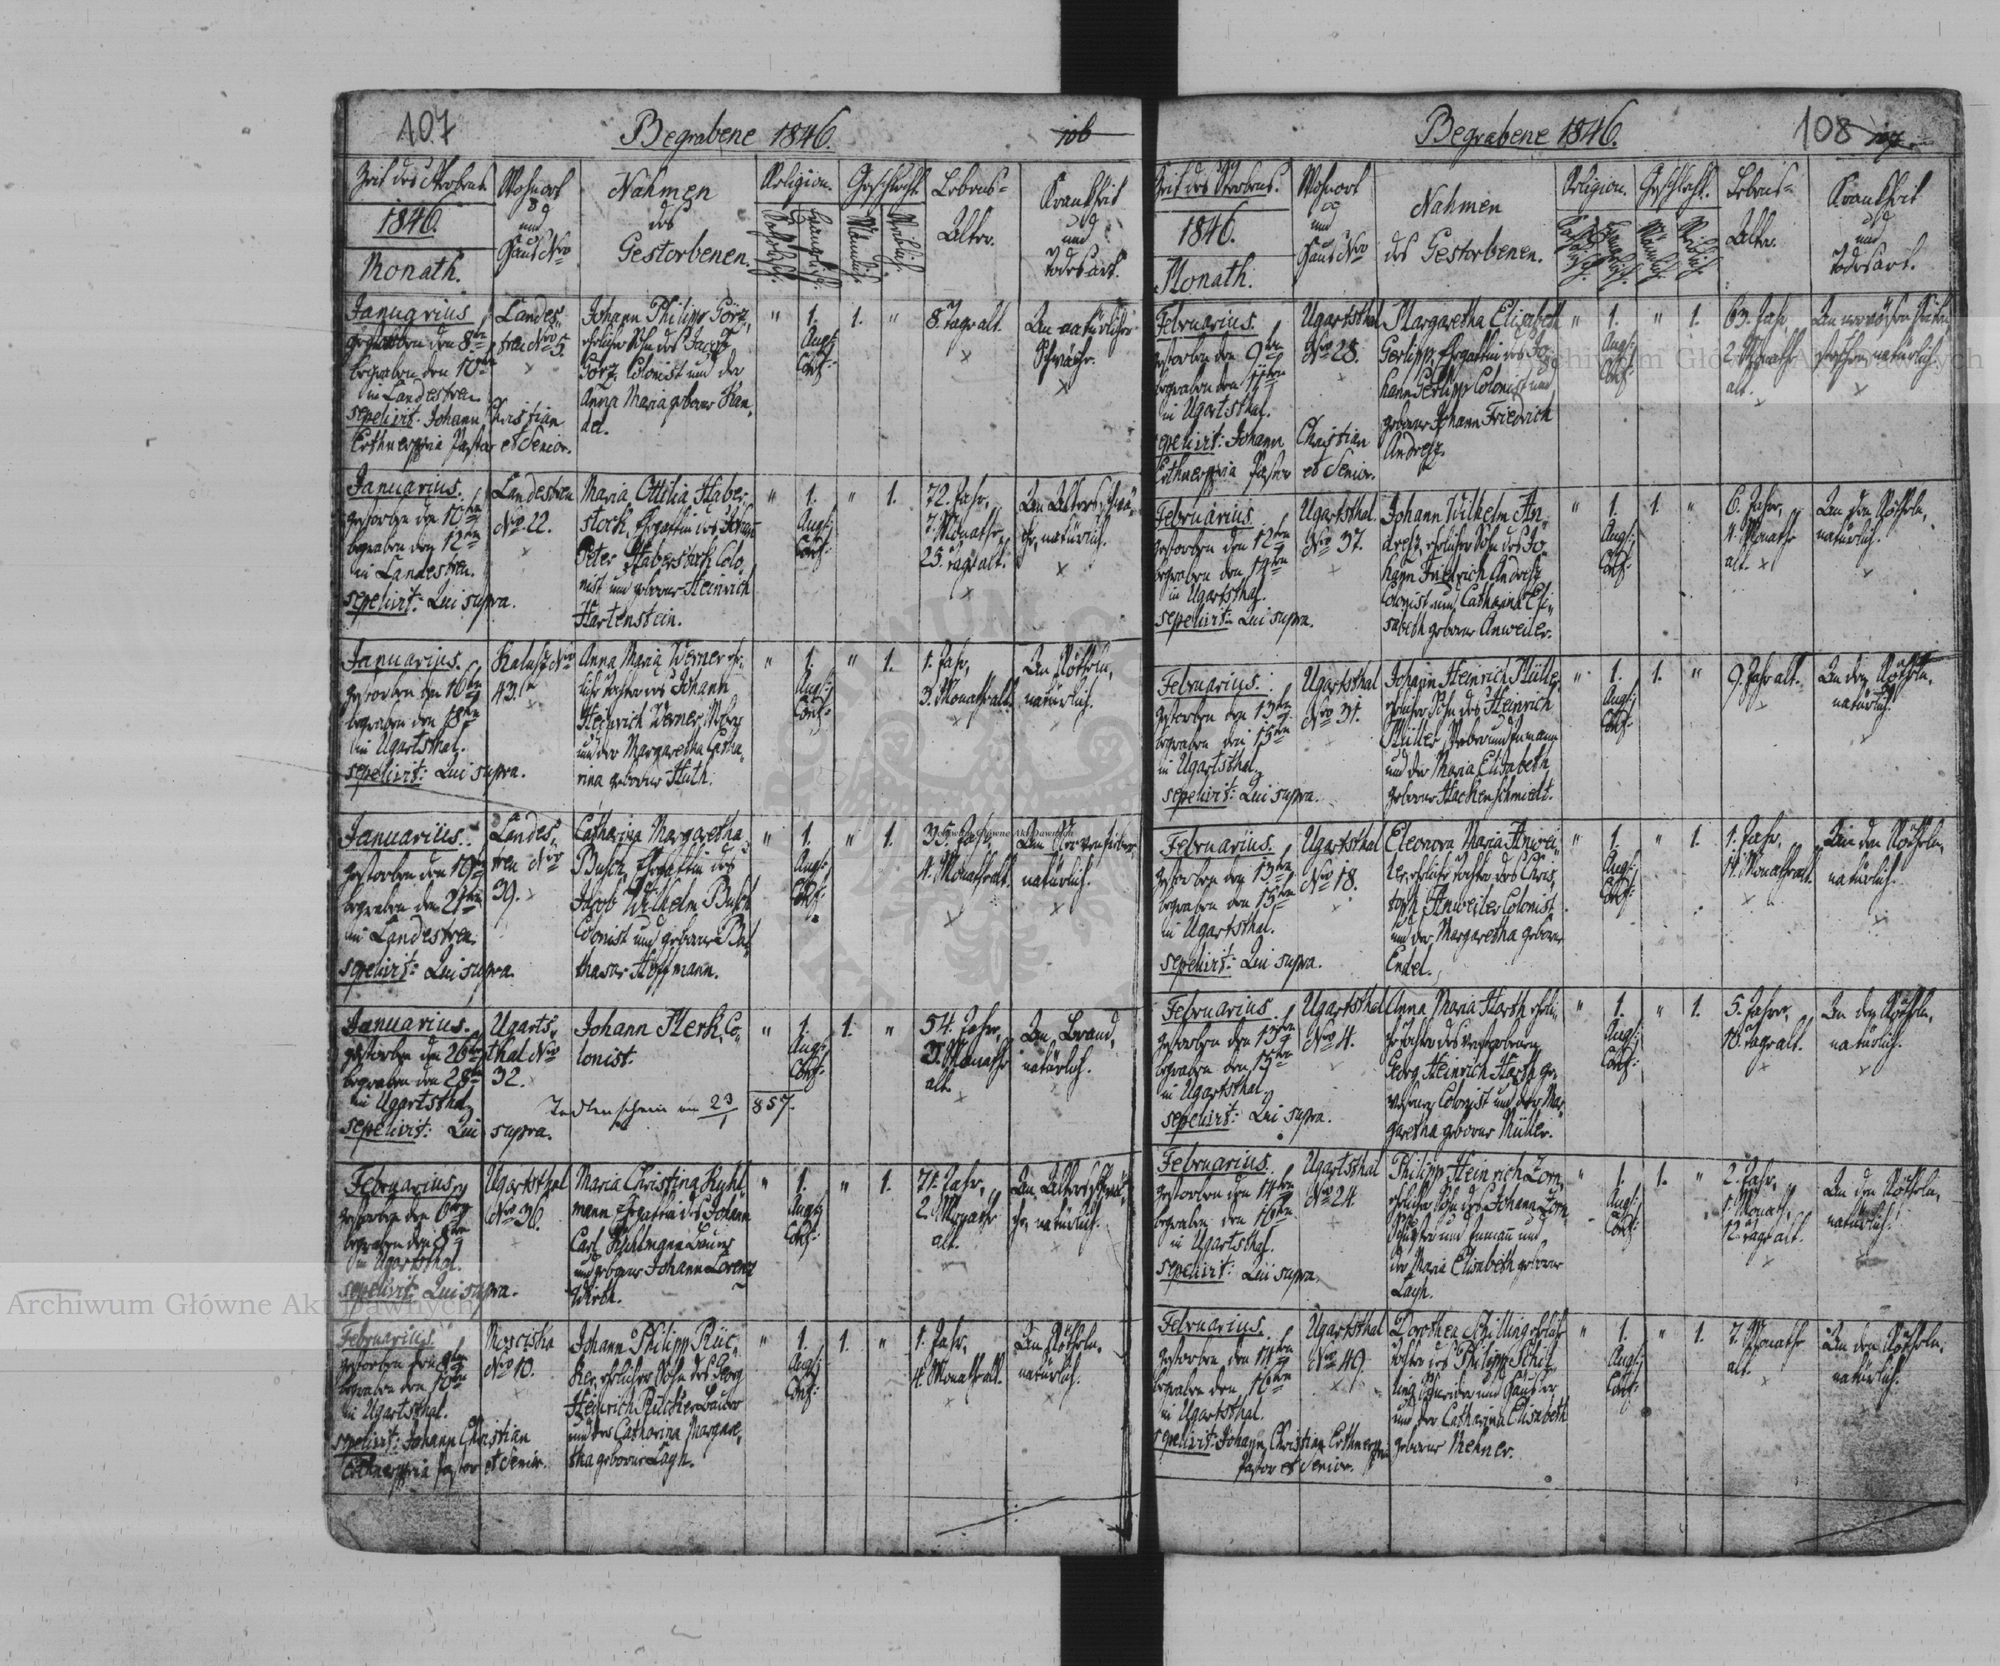 107
Begrabene 1846.
106
Zeit des Sterbens.
1846.
Monath.
Wohnort
und
Haus Nro
Nahmen
des
Gestorbenen.
Religion.
Katholisch.
Evangelisch.
Geschlecht.
Männlich.
Weiblich.
Lebens-
Alter.
Krankheit
und
Todesart.
Januarius
gestorben den 8ten
begraben den 10ten
in Landestreu.
sepelivit: Johann Christian
Pastor et Senior.
Landes,
treu Nro 5.
Johann Philipp Görz,
ehelicher Sohn des Jacob
Görz, Colonist und der
Anna Maria geborne Kan,
del.
" 1. 1. "
Augs:
Conf:
8. Tage alt.
An natürlicher
Schwäche.
Januarius.
gestorben den 10ten
begraben den 12ten
in Landestreu.
sepelivit: Qui supra.
Landestreu
Nro 22.
Maria Ottilia Haber,
stock, Ehegattin des Johann
Peter Haberstock Colo,
nist und geborne Heinrich
Hartenstein.
" 1. " 1.
Augs:
Conf:
72. Jahr,
7. Monathe,
25. Tage alt.
An Altersschwä,
che, natürlich.
Januarius.
gestorben den 16ten
begraben den 18ten
in Ugartsthal.
sepelivit: Qui supra.
Kalusz Nro
43.
Anna Maria Werner ehe,
liche Tochter des Johann
Heinrich Werner, Weber
und der Margaretha Catha,
rina geborne Huth.
" 1. " 1.
Augs:
Conf:
1. Jahr,
3. Monathe alt.
An Rötheln,
natürlich.
Januarius.
gestorben den 19ten
begraben den 21ten
in Landestreu.
sepelivit: Qui supra.
Landes,
treu Nro
39.
Catharina Margaretha
Busch, Ehegattin des
Jacob Wilhelm Busch
Colonist und geborne Bal,
thasar Hoffmann.
" 1. " 1.
Augs:
Conf:
35. Jahr,
4. Monathe alt.
An Nervenfieber
natürlich.
Januarius.
gestorben den 26ten
begraben den 28ten
in Ugartsthal
sepelivit: Qui supra.
Ugarts,
thal Nro
32.
Johann Merk, Co,
lonist.
" 1. 1. "
Augs:
Conf:
54. Jahr,
3. Monathe
alt.
An Brand,
natürlich.
Todtenschein am 23/1 857.
Februarius
gestorben den 6ten
begraben den 8ten
in Ugartsthal.
sepelivit: Qui supra.
Ugartsthal
Nro 36.
Maria Christina Kuhl,
mann Ehegattin des Johann
Carl Kuhlmann Bauer
und geborne Johann Lorenz
Wirth.
" 1. " 1.
Augs:
Conf:
71. Jahr,
2. Monathe
alt.
An Altersschwä,
che, natürlich.
Februarius.
gestorben den 8ten
begraben den 10ten
in Ugartsthal.
sepelivit: Johann Christian
Pastor et Senior.
Mosciska
Nro 10.
Johann Philipp Rüc,
ker, ehelicher Sohn des Georg
Heinrich Rücker Bauer
und der Catharina Margare,
tha geborne Lagh.
" 1. 1. "
Augs:
Conf:
1. Jahr,
4. Monathe alt.
An Rötheln,
natürlich.
Begrabene 1846.
108
107
Zeit des Sterbens.
1846.
Monath.
Wohnort
und
Haus Nro
Nahmen
des Gestorbenen.
Religion.
Katholisch.
Evangelisch.
Geschlecht.
Männlich.
Weiblich.
Lebens-
Alter.
Krankheit
und
Todesart.
Februarius.
gestorben den 9ten
begraben den 11ten
in Ugartsthal.
sepelivit: Johann Christian
Pastor et Senior.
Ugartsthal
Nro 28.
Margaretha Elisabeth
Gerlipp, Ehegattin des Jo,
hann Gerlipp Colonist und
geborne Johann Friedrich
Andresz.
" 1. " 1.
Augs:
Conf:
63. Jahr,
2. Monathe
alt.
natürlich.
Februarius
gestorben den 12ten
begraben den 14ten
in Ugartsthal.
sepelivit: Qui supra.
Ugartsthal.
Nro 37.
Johann Wilhelm An,
dresz, ehelicher Sohn des Jo,
hann Friedrich Andresz
Colonist und Catharina Eli,
sabeth geborne Anweiler.
" 1. 1. "
Augs:
Conf:
6. Jahr,
4. Monathe
alt.
An den Rötheln,
natürlich.
Februarius.
gestorben den 13ten
begraben den 15ten
in Ugartsthal
sepelivit: Qui supra.
Ugartsthal
Nro 31.
Johann Heinrich Müller
ehelicher Sohn des Heinrich
Müller, Weber und Inmann
und der Maria Elisabeth
geborne Hackenschmiedt.
" 1. 1. "
Augs:
Conf:
9. Jahr alt.
An den Rötheln,
natürlich.
Februarius.
gestorben den 13ten
begraben den 15ten
in Ugartsthal.
sepelivit: Qui supra.
Ugartsthal
Nro 18.
Eleonora Maria Anwei,
ler, eheliche Tochter des Chris,
toph Anweiler Colonist
und der Margaretha geborne
Endel.
" 1. " 1.
Augs:
Conf:
1. Jahr,
11. Monathe alt.
An den Rötheln,
natürlich.
Februarius.
gestorben den 13ten
begraben den 15ten
in Ugartsthal
sepelivit: Qui supra.
Ugartsthal
Nro 4.
Anna Maria Harth eheli,
che Tochter des verstorbenen
Georg Heinrich Harth ge,
wesener Colonist und der Mar,
garetha geborne Müller.
" 1. " 1.
Augs:
Conf:
5. Jahr,
18. Tage alt.
An den Rötheln,
natürlich.
Februarius.
gestorben den 14ten
begraben den 16ten
in Ugartsthal.
sepelivit: Qui supra.
Ugartsthal
Nro 24.
Philipp Heinrich Zorn,
ehelicher Sohn des Johann Zorn
Schuster und Inmann und
der Maria Elisabeth geborne
Lagh.
" 1. 1. "
Augs:
Conf:
2. Jahr,
1. Monath,
12. Tage alt.
An den Rötheln,
natürlich.
Februarius.
gestorben den 14ten
begraben den 16ten
in Ugartsthal.
sepelivit: Johann Christian
Pastor et Senior.
Ugartsthal
Nro 49.
Dorothea Schilling eheliche
Tochter des Philipp Schil,
ling Schneider und Häusler
und der Catharina Elisabeth
geborne Mehner.
" 1. " 1.
Augs:
Conf:
7. Monathe
alt.
An den Rötheln,
natürlich.
Archiwum Główne Akt Dawnych
Archiwum Główne Akt Dawnych
Archiwum Główne Akt Dawnych